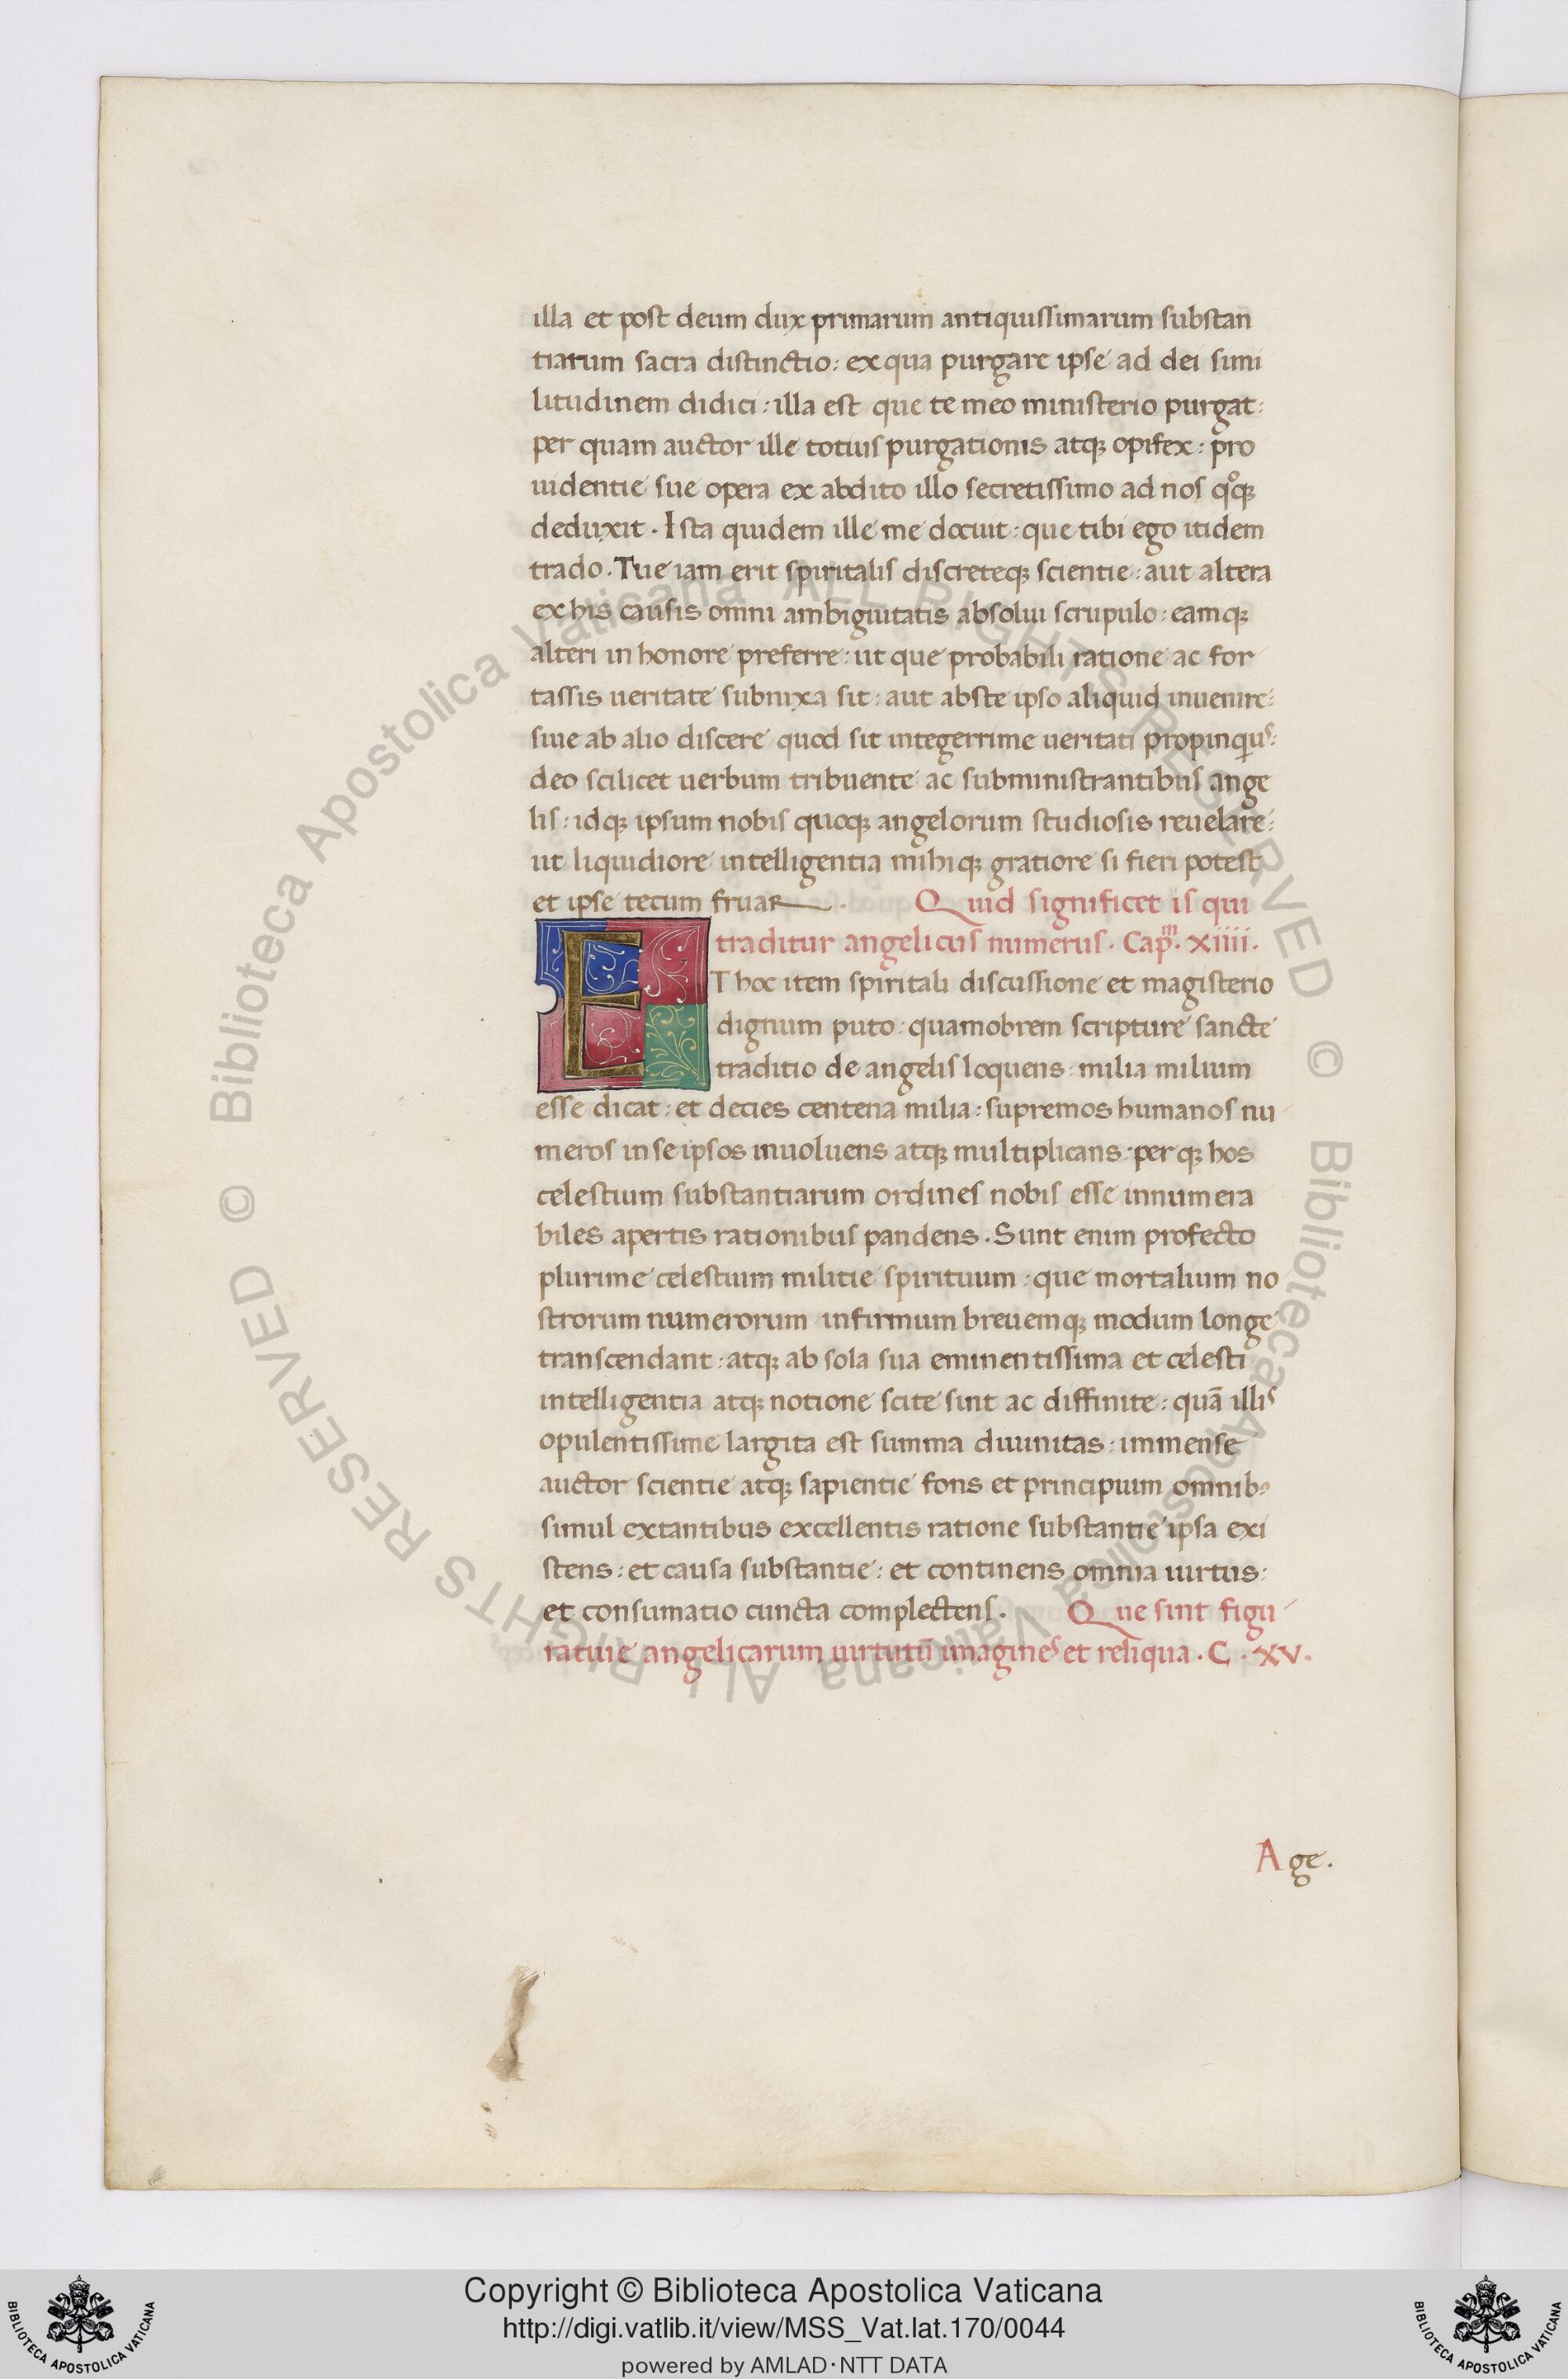 illa et post deum dux primarum antiquissimarum substan
tiarum sacra distinctio : ex qua purgare ipse ad dei simi
litudinem didici : illa est que te meo ministerio purgat :
per quam auctor ille totius purgationis atq; opifex : pro
uidentie sue opera ex abdito illo secretissimo ad nos qͦq;
deduxit . Ista quidem ille me docuit : que tibi ego itidem
trado . Tue iam erit spiritalis discreteq; scientie : aut altera
ex his causis omni ambiguitatis absolui scrupulo : eamq;
alteri in honore preferre : ut que probabili ratione ac for
tassis ueritate subnixa sit : aut abste ipso aliquid inuenire :
siue ab alio discere quod sit integerrime ueritati propinquiꝰ :
deo scilicet uerbum tribuente ac subministrantibus ange
lis : idq; ipsum nobis quoq; angelorum studiosis reuelare :
ut liquidiore intelligentia mihiq; gratiore si fieri potest
et ipse tecum fruar . Quid significet is qui
traditur angelicus numerus . Capᵐ . xiiii .
ET hoc item spiritali discussione et magisterio
dignum puto : quamobrem scripture sancte
traditio de angelis loquens : milia milium
esse dicat : et decies centena milia : supremos humanos nu
meros in se ipsos inuoluens atq; multiplicans : per q; hos
celestium substantiarum ordines nobis esse innumera
biles apertis rationibus pandens . Sunt enim profecto
plurime celestium militie spirituum : que mortalium no
strorum numerorum infirmum breuemq; modum longe
transcendant : atq; ab sola sua eminentissima et celesti
intelligentia atq; notione scite sint ac diffinite : quā illis
opulentissime largita est summa diuinitas : immense
auctor scientie atq; sapientie fons et principium omnibꝰ
simul extantibus excellentis ratione substantie ipsa exi
stens : et causa substantie : et continens omnia uirtus :
et consumatio cuncta complectens . Que sint figu
ratiuie angelicarum uirtutū imagines et reliqua . C . xv .
Age .
© Biblioteca Apostolica Vaticana ALL RIGHTS RESERVED © Biblioteca Apostolica Vaticana ALL RIGHTS RESERVED
Copyright © Biblioteca Apostolica Vaticana
http://digi.vatlib.it/view/MSS_Vat.lat.170/0044
powered by AMLAD·NTT DATA
BIBLIOTECA APOSTOLICA VATICANA
BIBLIOTECA APOSTOLICA VATICANA